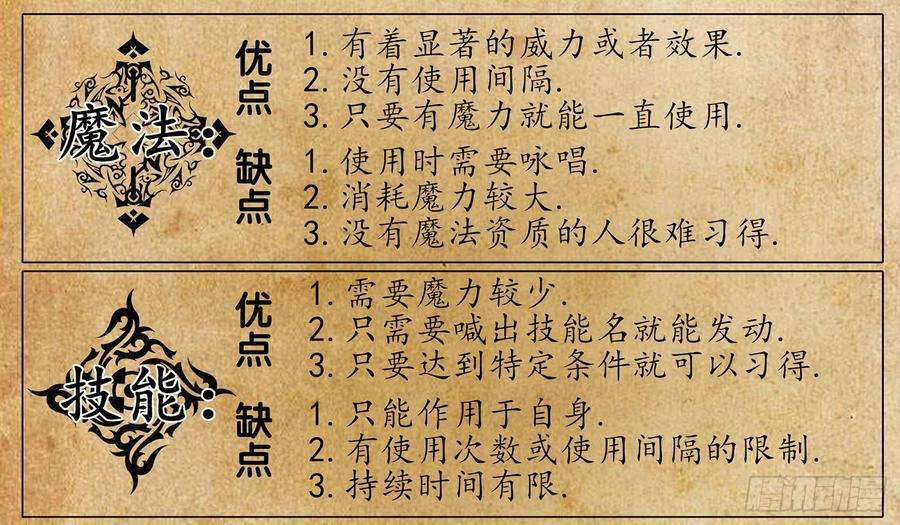 魔法:
优点
1. 有着显著的威力或者效果.
2. 没有使用间隔.
3. 只要有魔力就能一直使用.
缺点
1. 使用时需要咏唱.
2. 消耗魔力较大.
3. 没有魔法资质的人很难习得.
技能:
优点
1. 需要魔力较少.
2. 只需要喊出技能名就能发动.
3. 只要达到特定条件就可以习得.
缺点
1. 只能作用于自身.
2. 有使用次数或使用间隔的限制.
3. 持续时间有限.
腾讯动漫